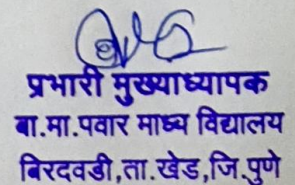 प्रभारी मुख्याध्यापक
बा.मा.पवार माध्य विद्यालय
बिरदवडी,ता.खेड,जि.पुणे